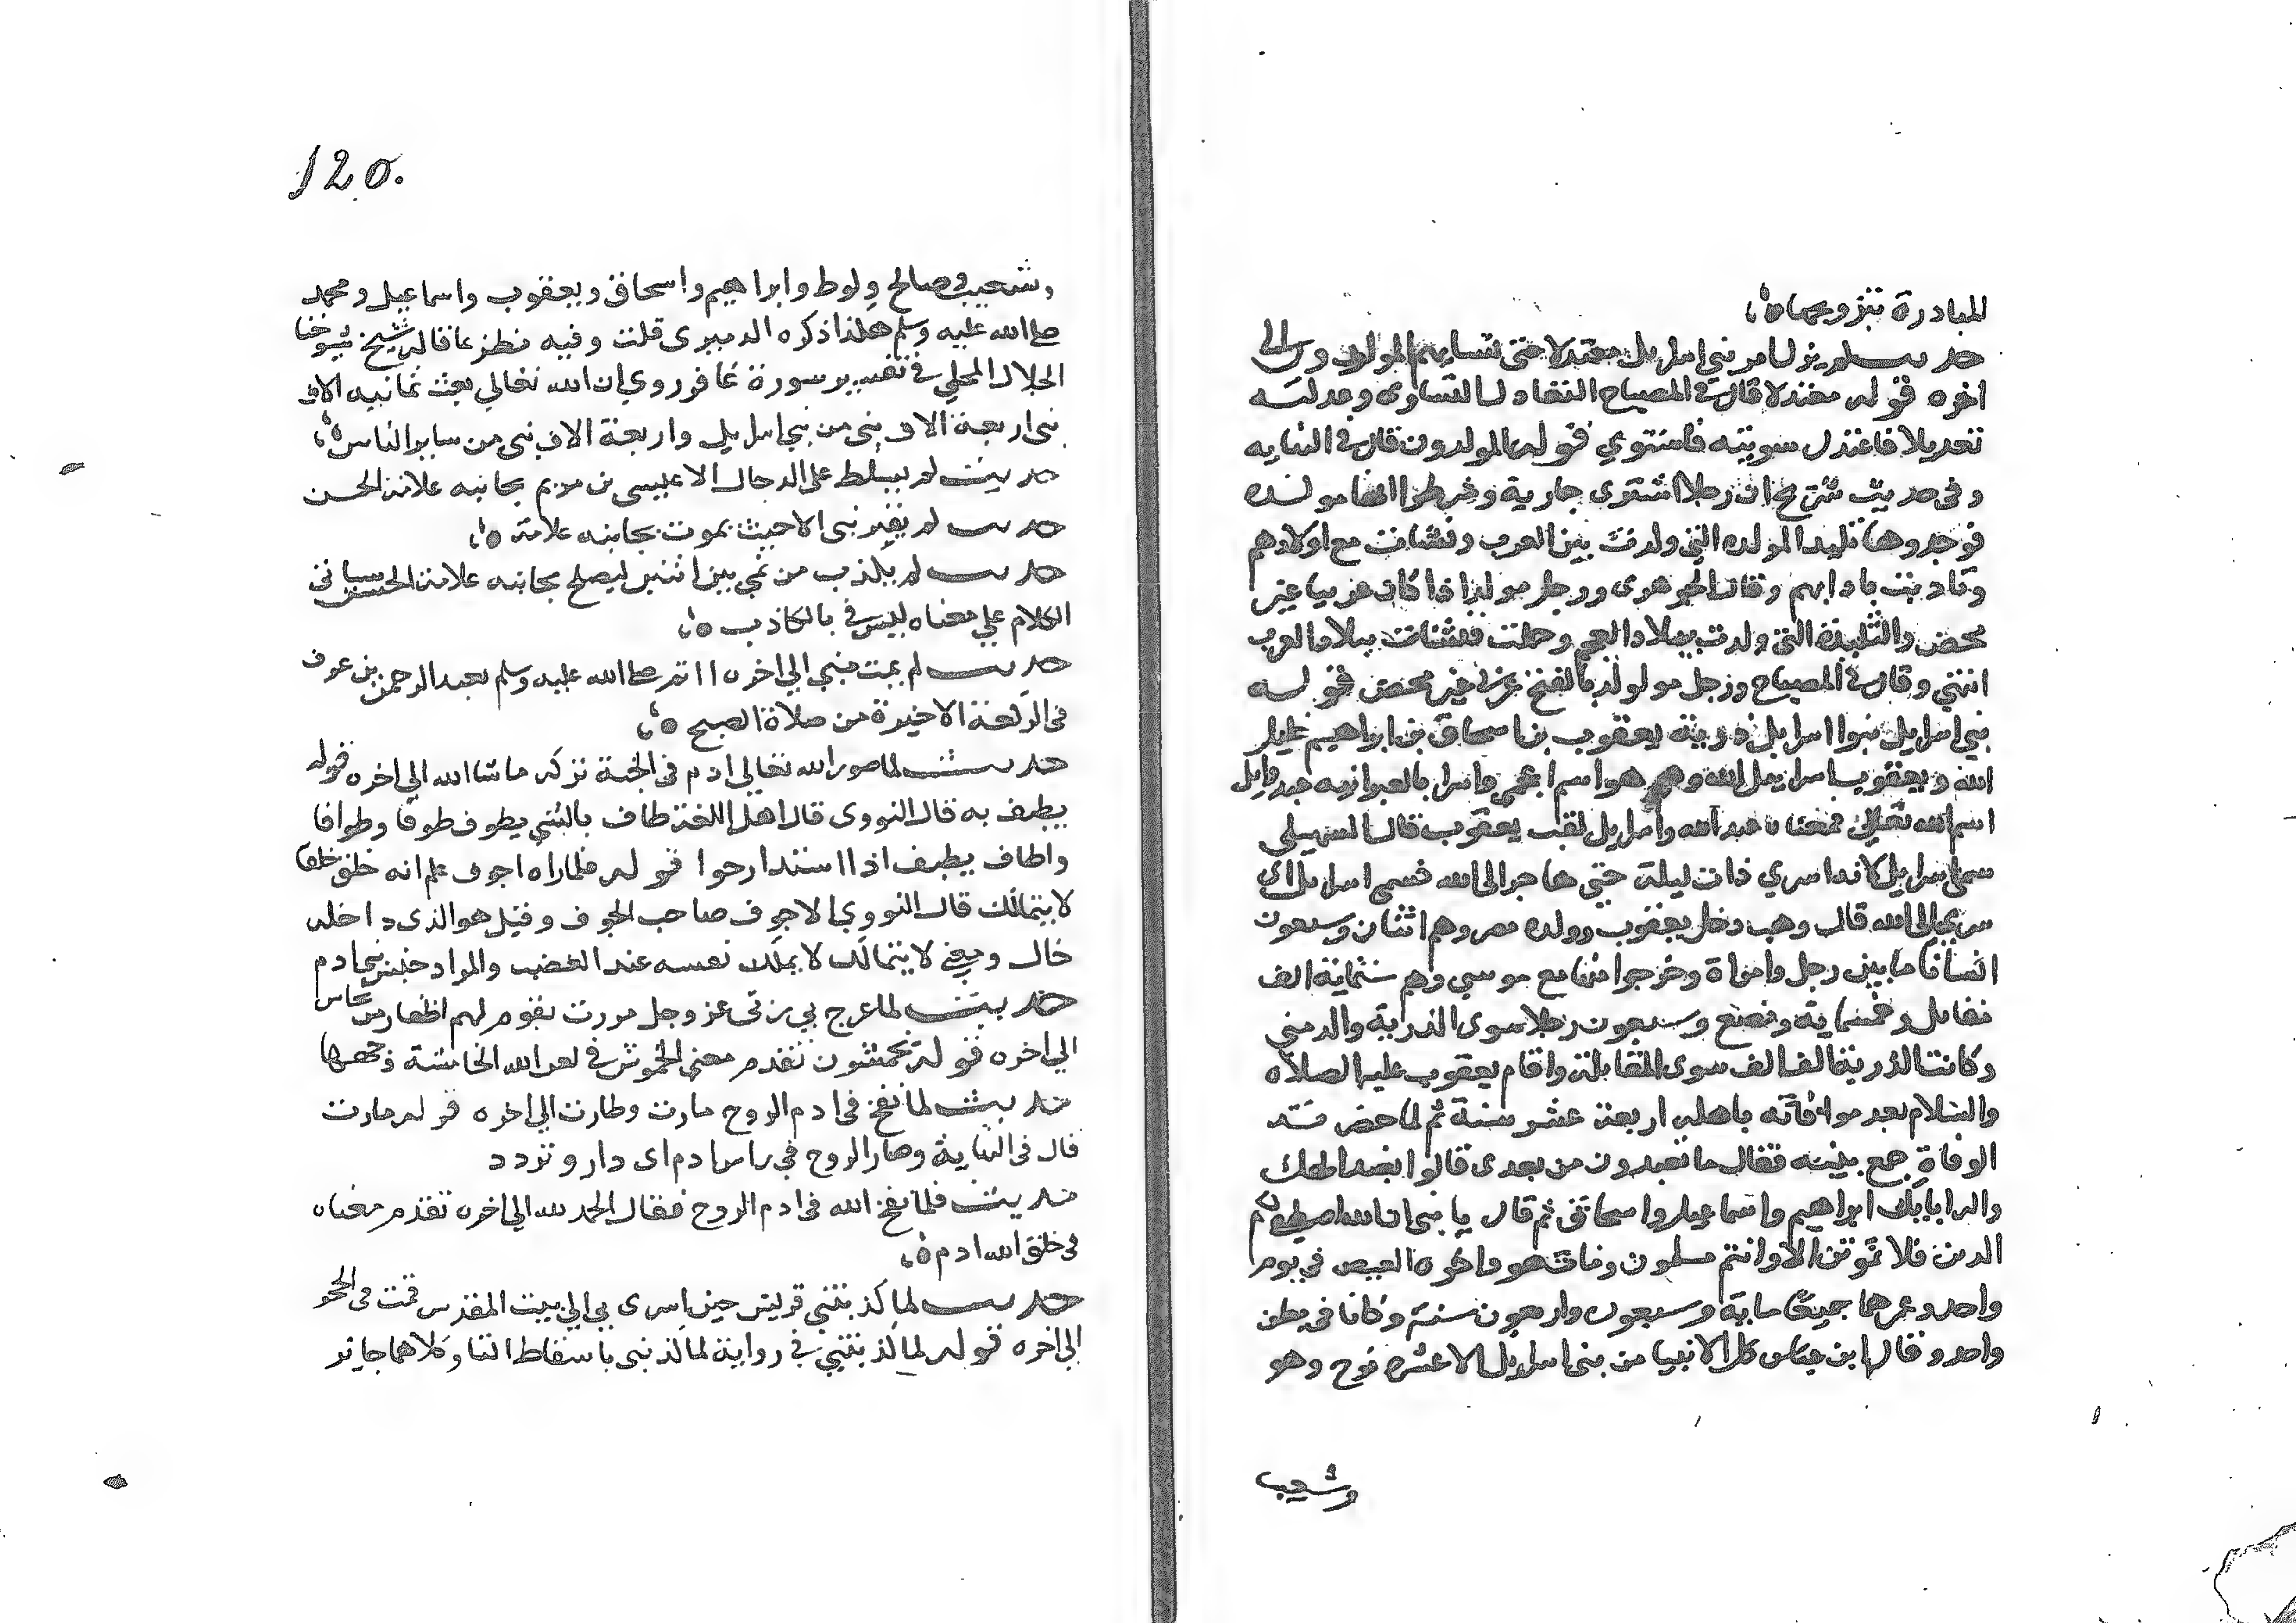 للمبادرة بتزوجها ه
حديث لم يزل امر بني اسرايل معتدلا حتى نشا فيهم المولدون الى
اخره قوله معتدلا قال في المصباح التعادل التساوى وعدلته
تعديلا فاعتدل سويته فاستوي قوله المولدون قال في النهايه
وفى حديث شريح ان رجلا اشترى جارية وشرطوا انها مولده
فوجدوها تليده المولده التي ولدت بين العرب ونشات مع اولادهم
وتادبت بادابهم وقال الجوهرى ورجل مولد اذا كان عربيا غير
محض والتليدة التي ولدت ببلاد العجم وحملت فنشات ببلاد العرب
انتهي وقال في المصباح ورجل مولد بالفتح عربي غير محض قوله
بني اسرايل بنوا اسرايل ذرية يعقوب بن اسحاق بن ابراهيم خليل
الله ويعقوب اسرايل الله وهو اسم اعجمي واسرا بالعبرانيه عبد وايل
اسم الله تعالى فمعناه عبد الله واسرايل لقب يعقوب قال السهيلي
سمي اسرايل لانه اسري ذات ليلة حين هاجر الى الله فسمى اسرايل اى
سري الى الله قال وهب دخل يعقوب وولده مصر وهم اثنان وسبعون
انسانا ما بين رجل وامراة وخرجوا منها مع موسي وهم ستماية الف
مقاتل وخمسماية وبضع وسبعون رجلا سوى الذرية والزمني
وكانت الذرية الف الف سوى المقاتلة واقام يعقوب عليه الصلاه
والسلام بعد موافاته باهله اربعة عشر سنة ثم لما حضرته
الوفاة جمع بنيه فقال ما تعبدون من بعدى قالوا نعبد الهك
واله ابايك ابراهيم واسماعيل واسحاق ثم قال يا بنى ان الله اصطفى لكم
الدين فلا تموتن الا وانتم مسلمون ومات هو واخوه العيص في يوم
واحد وعمرهما جميعا ماية وسبعون واربعون سنة وكانا في بطن
واحد وقال ابن عباس كل الانبيا من بني اسرايل الا عشره نوح وهو
وشعيب
120.
وشعيب وصالح ولوط وابراهيم واسحاق ويعقوب واسماعيل ومحمد
صلى الله عليه وسلم هكذا ذكره الدميرى قلت وفيه نظر فقال شيخ شيوخنا
الجلال المحلي في تفسير سورة غافر وروي ان الله تعالي بعث ثمانيه الاف
نبى اربعة الاف نبى من بني اسرايل واربعة الاف نبى من ساير الناس ه
حديث لم يسلط على الدجال الا عيسى بن مريم بجانبه علامة الحسن
حديث لم يقبر نبى الا حيث يموت بجانبه علامة ه
حديث لم يكذب من نمي بين اثنين ليصلح بجانبه علامة الحسن سياتي
الكلام علي معناه في ليس بالكاذب ه
حديث لم يمت نبي الي اخره ااتم صلى الله عليه وسلم بعبد الرحمن بن عوف
فى الركعة الاخيرة من صلاة الصبح ه
حديث لما صور الله تعالي ادم فى الجنة تركه ما شا الله الي اخره قوله
يطيف به قال النووى قال اهل اللغة طاف بالشي يطوف طوفا وطوافا
واطاف يطيف اذا استدار حوا قوله فلما راه اجوف علم انه خلق خلقا
لا يتمالك قال النووي الاجوف صاحب الجوف وقيل هو الذى داخله
خال ومعني لا يتمالك لا يملك نفسه عند الغضب والمراد جنس بني ادم
حديث لما عرج بي ربى عز وجل مررت بقوم لهم اظفار من نحاس
الي اخره قوله يخمشون تقدم معنى الخموش في لعن الله الخامشة وجهها
حديث لما نفخ فى ادم الروح مارت وطارت الي اخره قوله مارت
قال فى النهاية وصار الروح في راس ادم اى دار وتردد
حديث فلما نفخ الله فى ادم الروح فقال الحمد لله الي اخره تقدم معناه
فى خلق الله ادم ه
حديث لما كذبتني قريش حين اسرى بي الي بيت المقدس قمت فى الحجر
الي اخره قوله لما كذبتني في رواية لما كذبنى باسقاط التا وكلاهما جايز